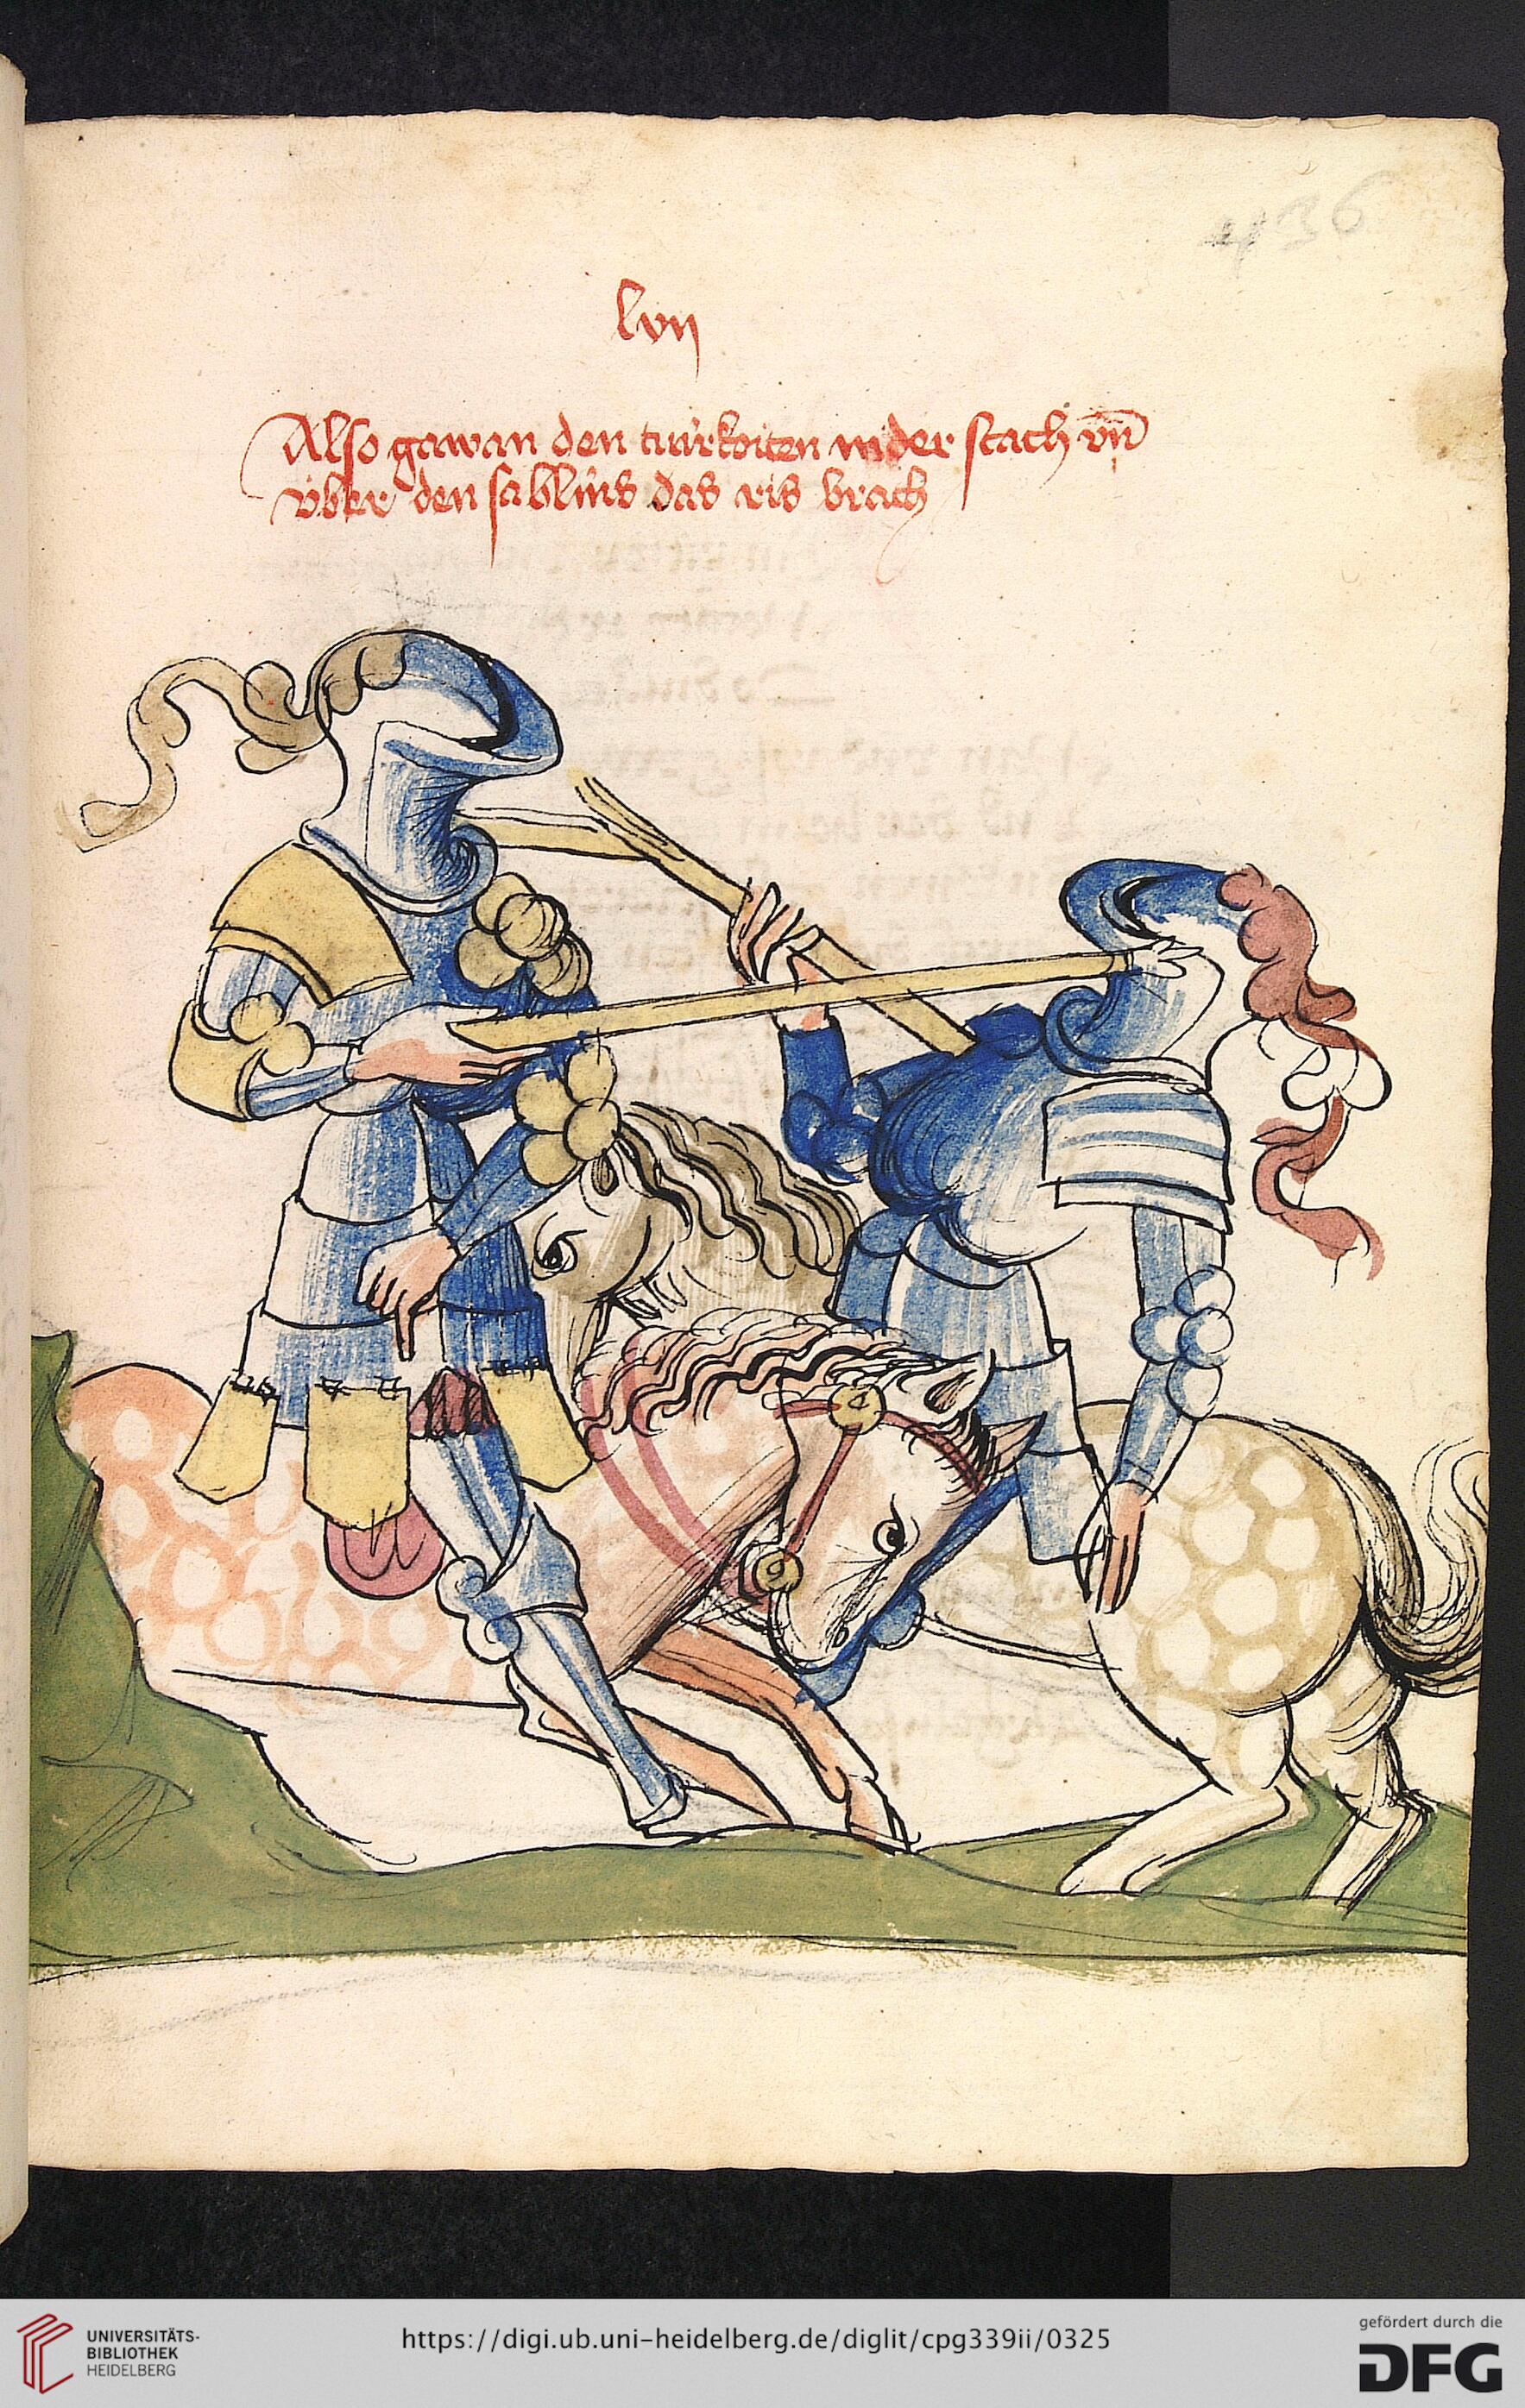 436
lvii
Also gawan den turkoiten nider stach vn̄
vber den sablins das ris brach
UNIVERSITÄTS-
BIBLIOTHEK
HEIDELBERG
https://digi.ub.uni-heidelberg.de/diglit/cpg339ii/0325
gefördert durch die
DFG